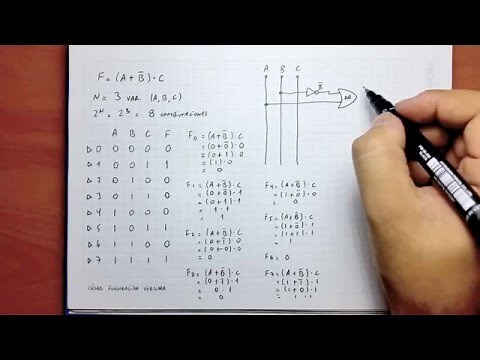 F = (A + B̄) · C
N = 3 VAR. (A, B, C)
2ᴺ = 2³ = 8 COMBINACIONES
A B C F
▷0 0 0 0 0
▷1 0 0 1 1
▷2 0 1 0 0
▷3 0 1 1 0
▷4 1 0 0 0
▷5 1 0 1 1
▷6 1 1 0 0
▷7 1 1 1 1
F₀ = (A+B̄)·C
= (0+0̄)·0
= (0+1)·0
= (1)·0
= 0
F₁ = (A+B̄)·C
= (0+0̄)·1
= (0+1)·1
= 1·1
= 1
F₂ = (A+B̄)·C
= (0+1̄)·0
= (0+0)·0
= 0
F₃ = (A+B̄)·C
= (0+1̄)·1
= 0·1
= 0
F₄ = (A+B̄)·C
= (1+0̄)·0
= 0
F₅ = (A+B̄)·C
= (1+0̄)·1
= (1+1)·1
= 1
F₆ = 0
F₇ = (A+B̄)·C
= (1+1̄)·1
= (1+0)·1
= 1·1
A B C
B̄
OR
CÉSAR FUENZALIDA VERGARA